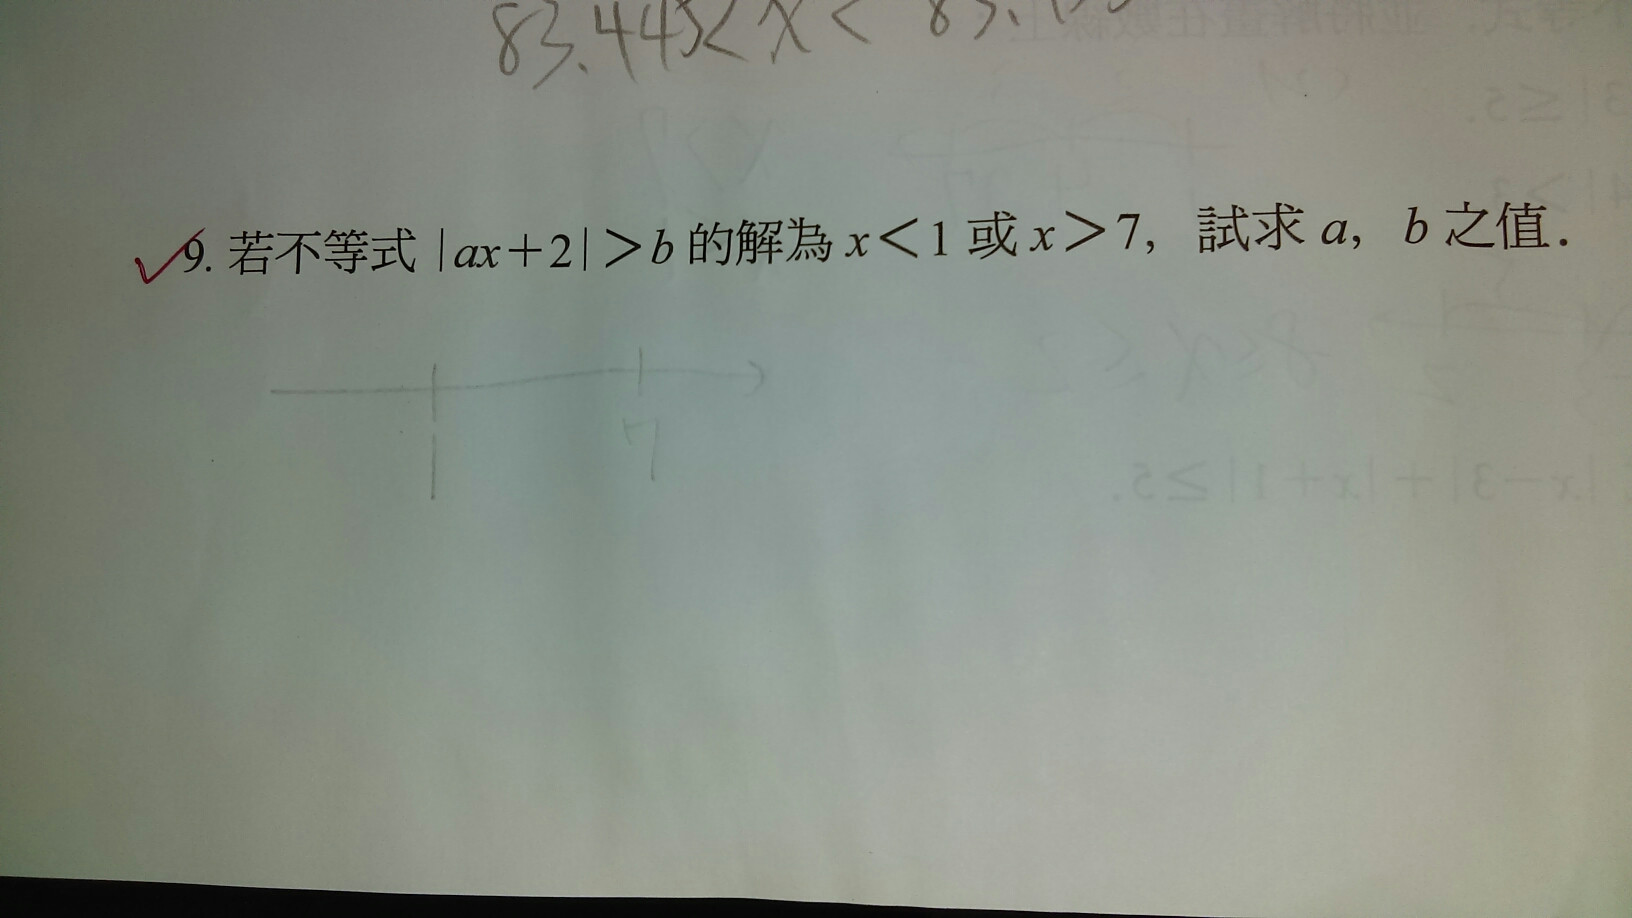 83.445<x<83.
9. 若不等式 |ax+2|>b 的解為 x<1 或 x>7, 試求 a, b 之值.
1 7